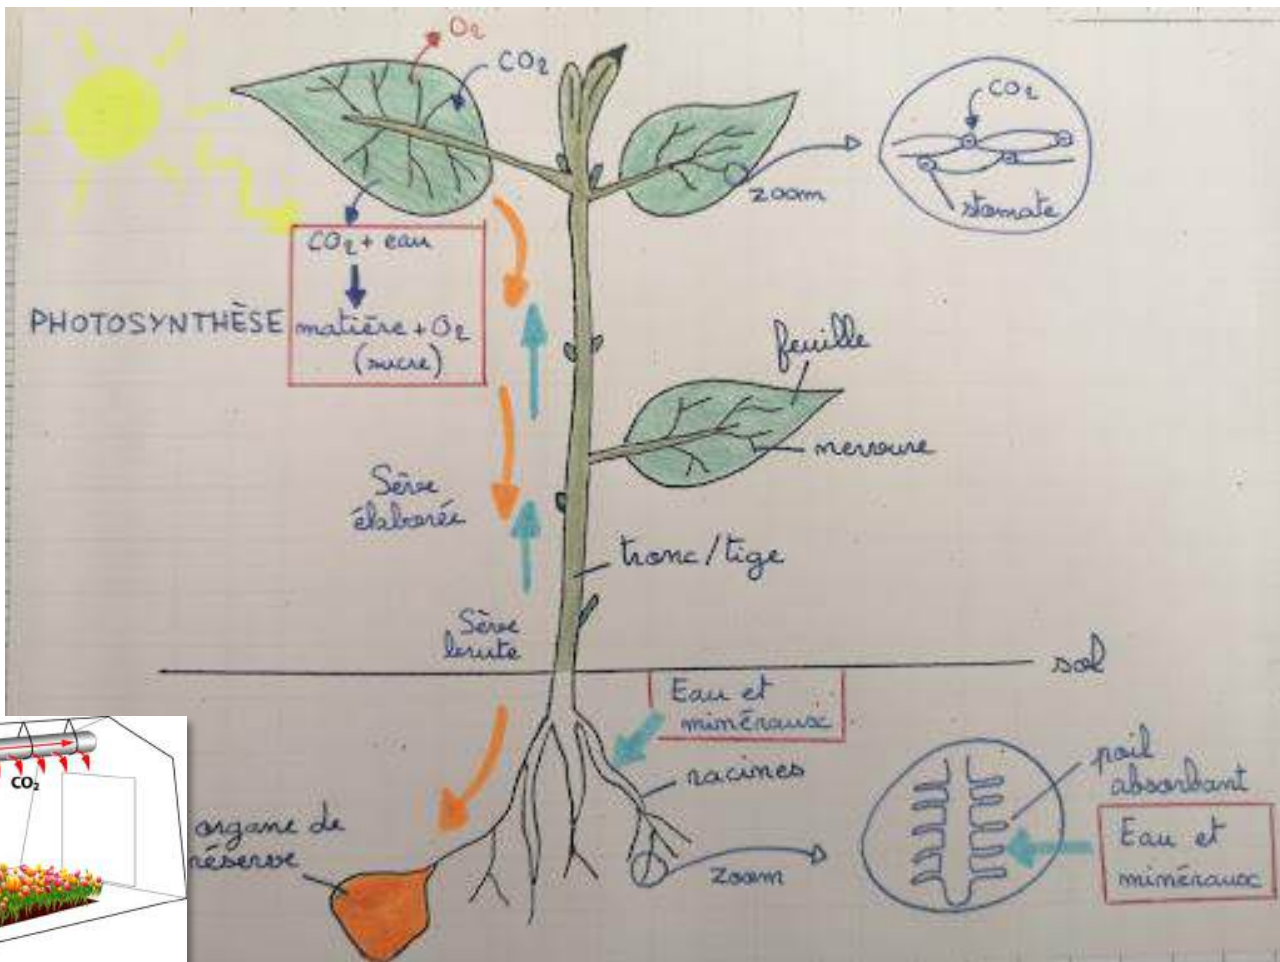 O₂
CO₂
CO₂
zoom
stomate
CO₂ + eau
PHOTOSYNTHÈSE
matière + O₂
(sucre)
feuille
nervure
Sève
élaborée
tronc/tige
Sève
brute
sol
Eau et
minéraux
racines
poil
absorbant
CO₂
organe de
réserve
Eau et
minéraux
zoom